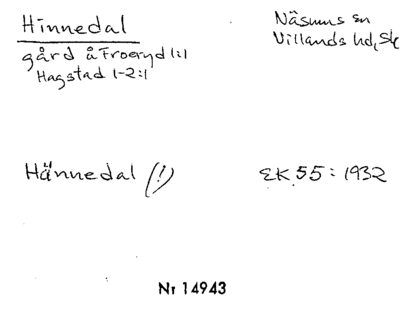 Hinnedal
Näsums sn
Villands hd, Sk
gård å Froeryd 1:1
Hagstad 1-2:1
Hännedal (!)
EK 55: 1932
Nr 14943